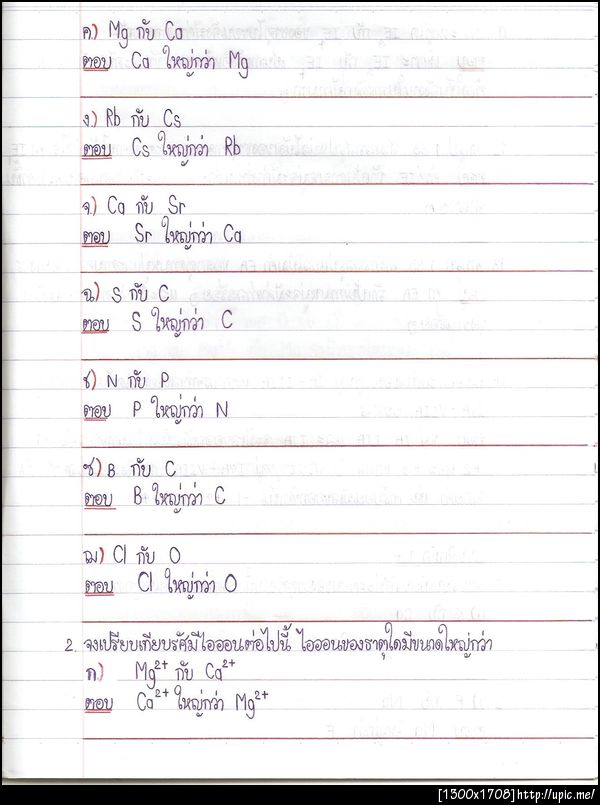 ค) Mg กับ Ca
ตอบ Ca ใหญ่กว่า Mg
ง) Rb กับ Cs
ตอบ Cs ใหญ่กว่า Rb
จ) Ca กับ Sr
ตอบ Sr ใหญ่กว่า Ca
ฉ) S กับ C
ตอบ S ใหญ่กว่า C
ช) N กับ P
ตอบ P ใหญ่กว่า N
ซ) B กับ C
ตอบ B ใหญ่กว่า C
ฌ) Cl กับ O
ตอบ Cl ใหญ่กว่า O
2. จงเปรียบเทียบรัศมีไอออนต่อไปนี้ ไอออนของธาตุใดมีขนาดใหญ่กว่า
ก) Mg²⁺ กับ Ca²⁺
ตอบ Ca²⁺ ใหญ่กว่า Mg²⁺
[1300x1708]http://upic.me/